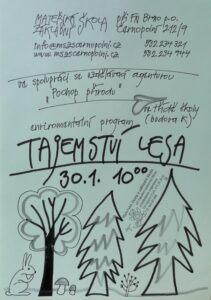 MATEŘSKÁ ŠKOLA při FN Brno p.o.
ZÁKLADNÍ Černopolní 212/9
info@mszscernopolni.cz 532 234 321
www.mszscernopolni.cz 532 234 944
ve spolupráci se vzdělávací agenturou
"Pochop přírodu"
na třídě školy
(budova K)
enviromentální program
TAJEMSTVÍ LESA
30.1. 10⁰⁰